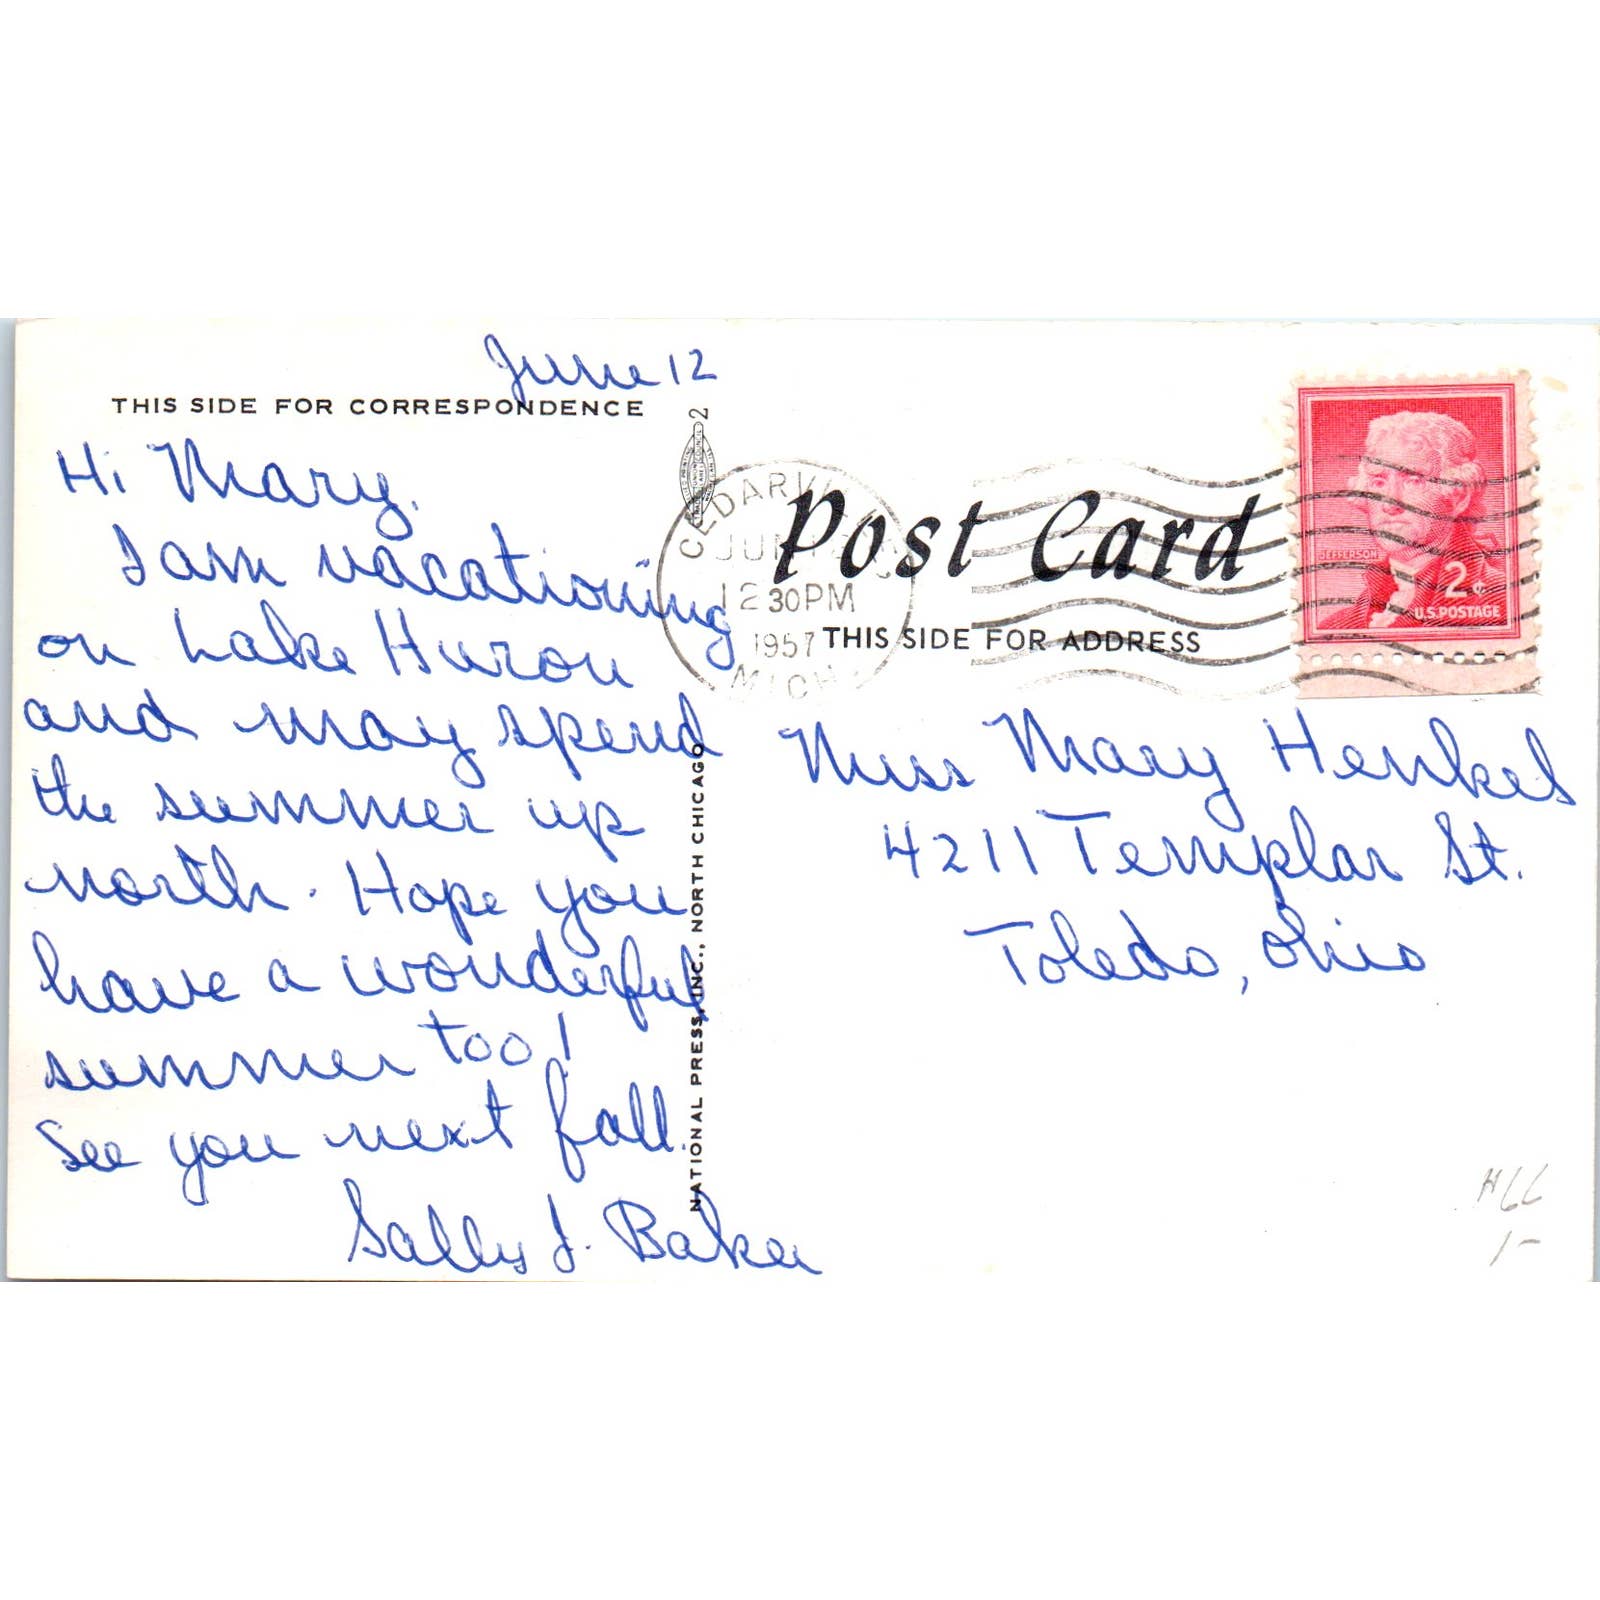 June 12
THIS SIDE FOR CORRESPONDENCE
Hi Mary,
I am vacationing
on Lake Huron
and may spend
the summer up
north. Hope you
have a wonderful
summer too!
See you next fall.
Sally J. Baker
2
NATIONAL PRESS, INC., NORTH CHICAGO
CEDARVILLE
JUN 12
12 30 PM
1957
MICH.
Post Card
THIS SIDE FOR ADDRESS
JEFFERSON
2¢
U.S. POSTAGE
Miss Mary Henkel
4211 Templar St.
Toledo, Ohio
H66
1-